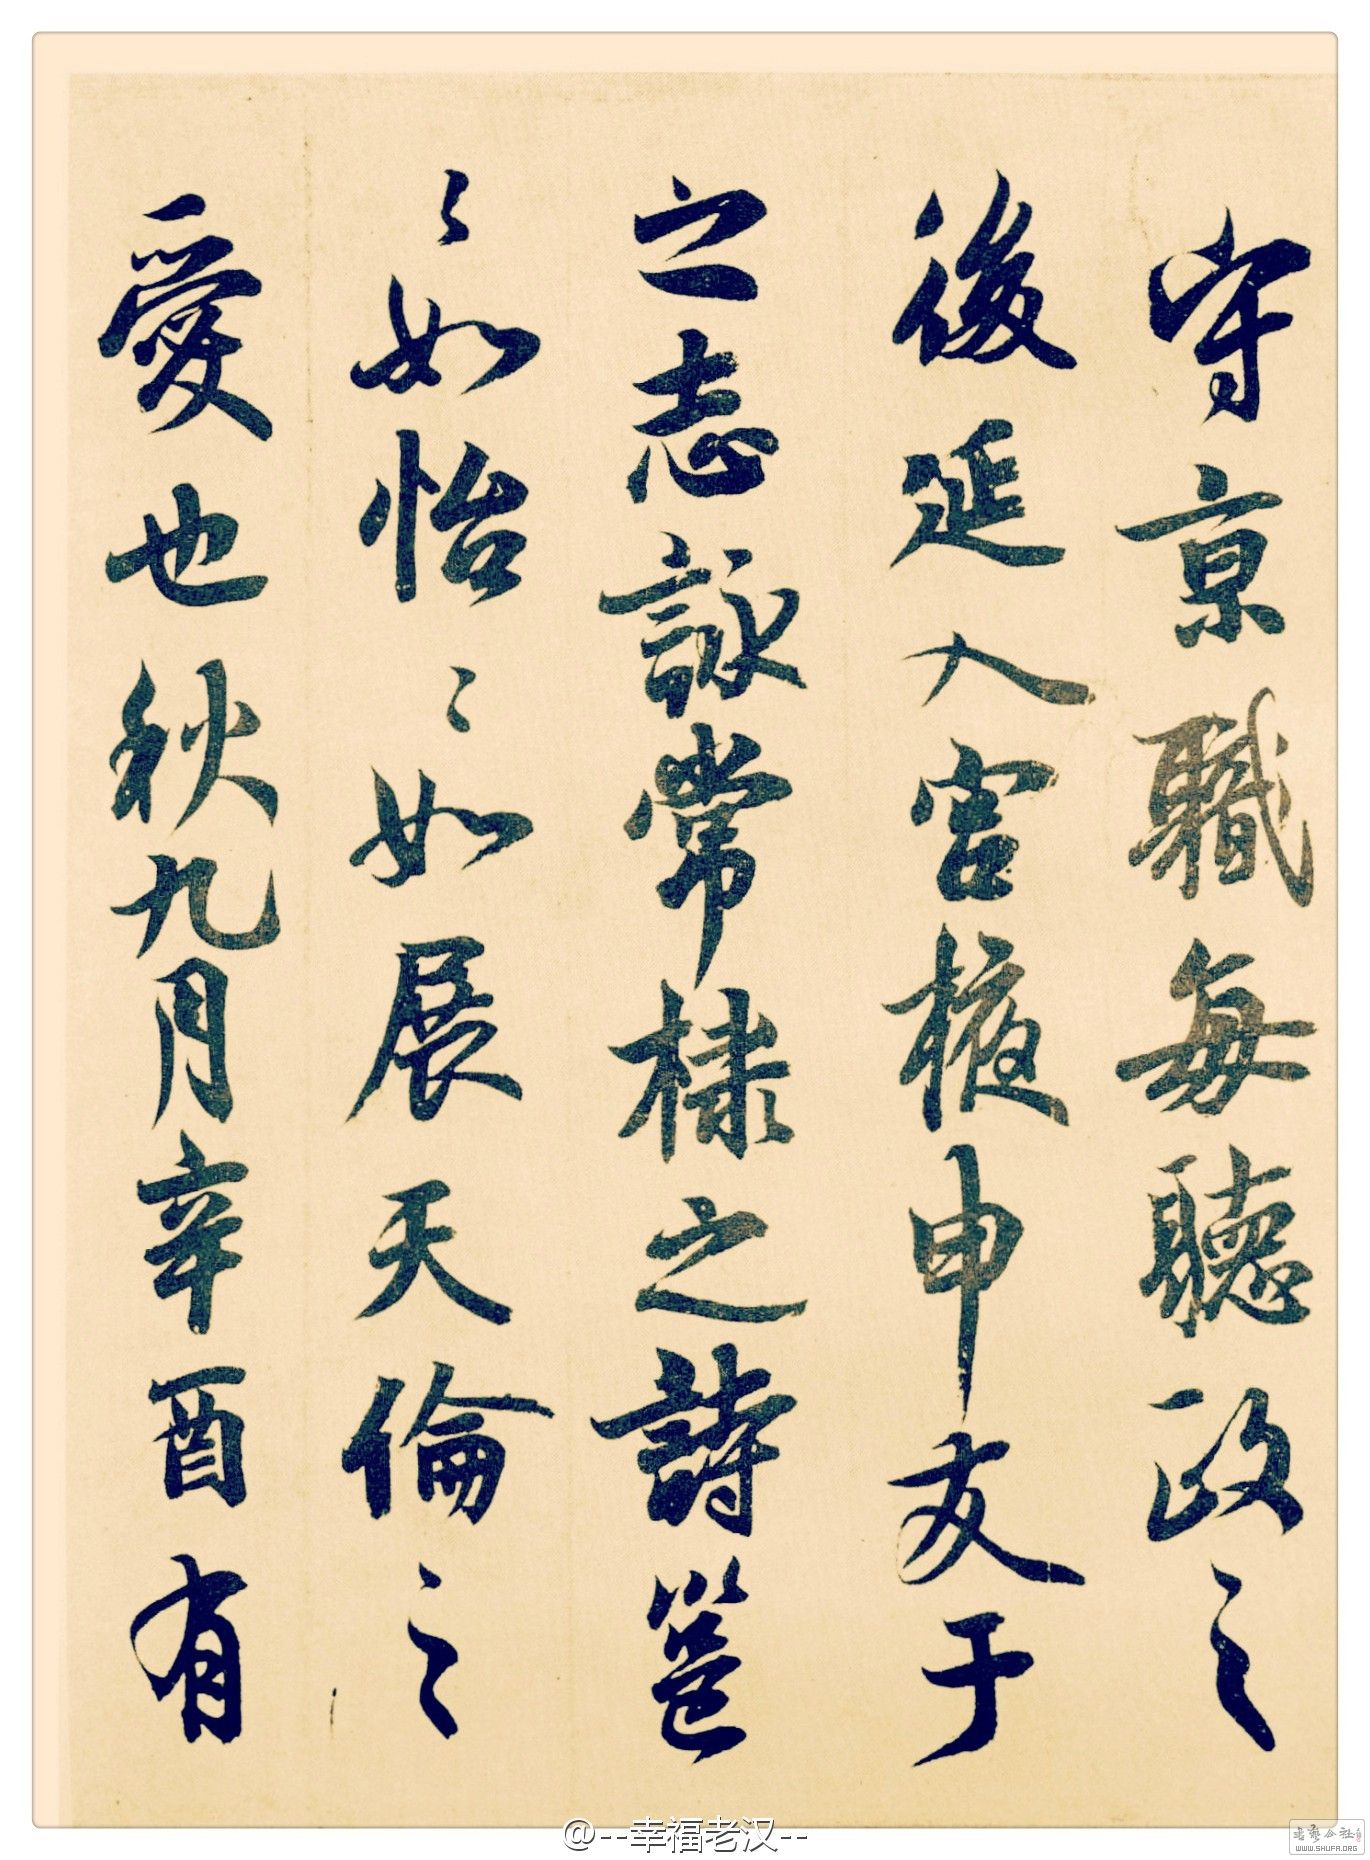 守京職每聽政之
後延入宮掖申友于
之志詠常棣之詩邕
〻如怡〻如展天倫之
愛也秋九月辛酉有
@--幸福老汉--
书艺公社
WWW.SHUFA.ORG